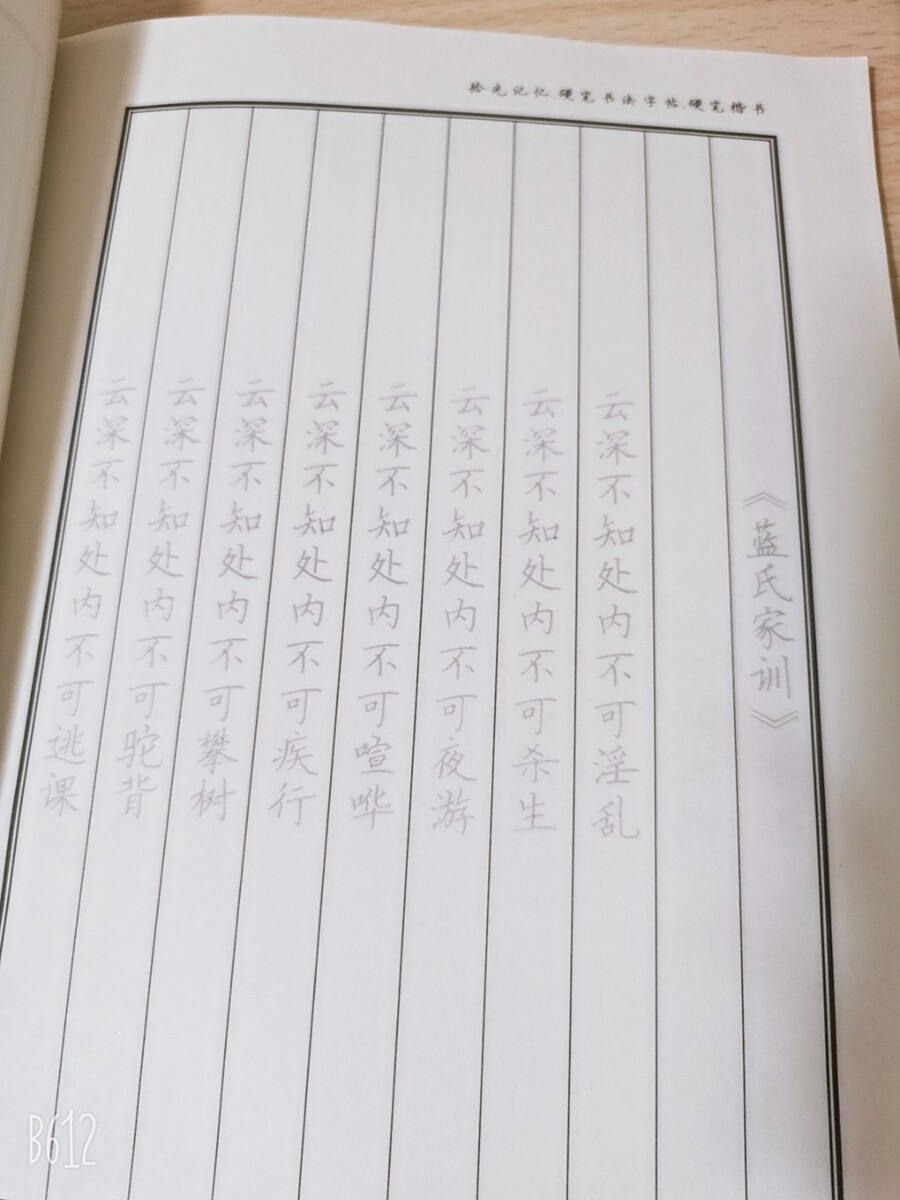 拾光记忆.硬笔书法字帖.硬笔楷书
《蓝氏家训》
云深不知处内不可淫乱
云深不知处内不可杀生
云深不知处内不可夜游
云深不知处内不可喧哗
云深不知处内不可疾行
云深不知处内不可攀树
云深不知处内不可驼背
云深不知处内不可逃课
B612